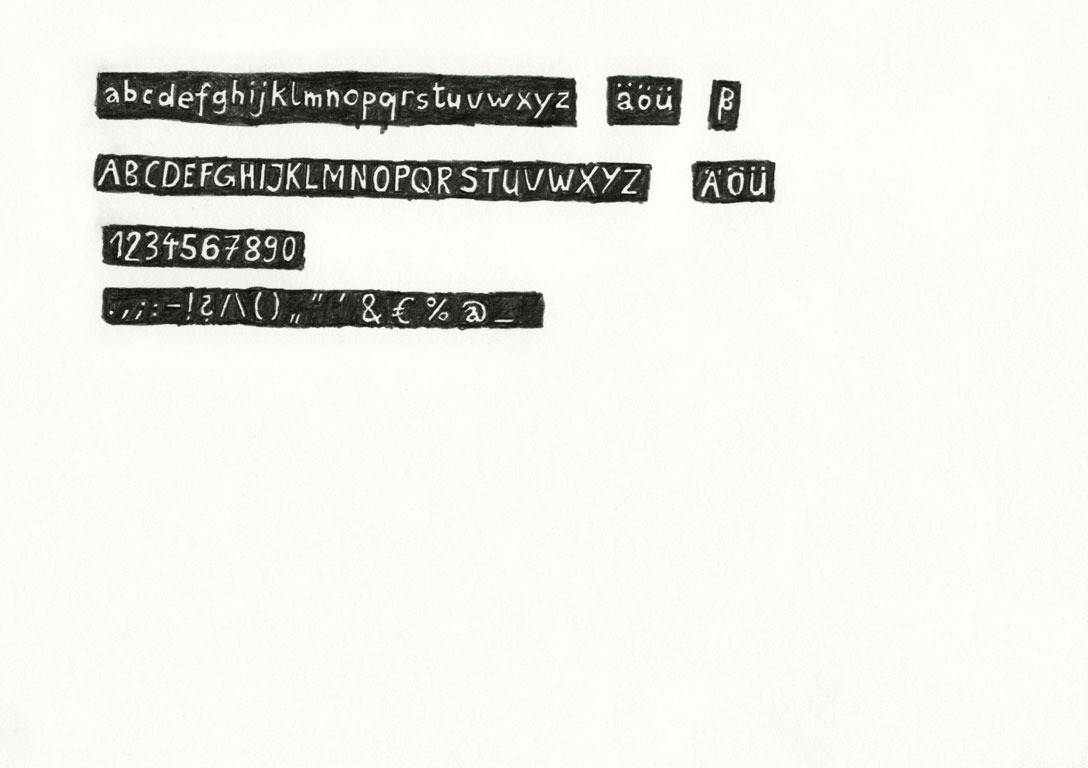 abcdefghijklmnopqrstuvwxyz äöü ß
ABCDEFGHIJKLMNOPQRSTUVWXYZ ÄÖÜ
1234567890
.,;:-!?/\()„" ' & € % @ _